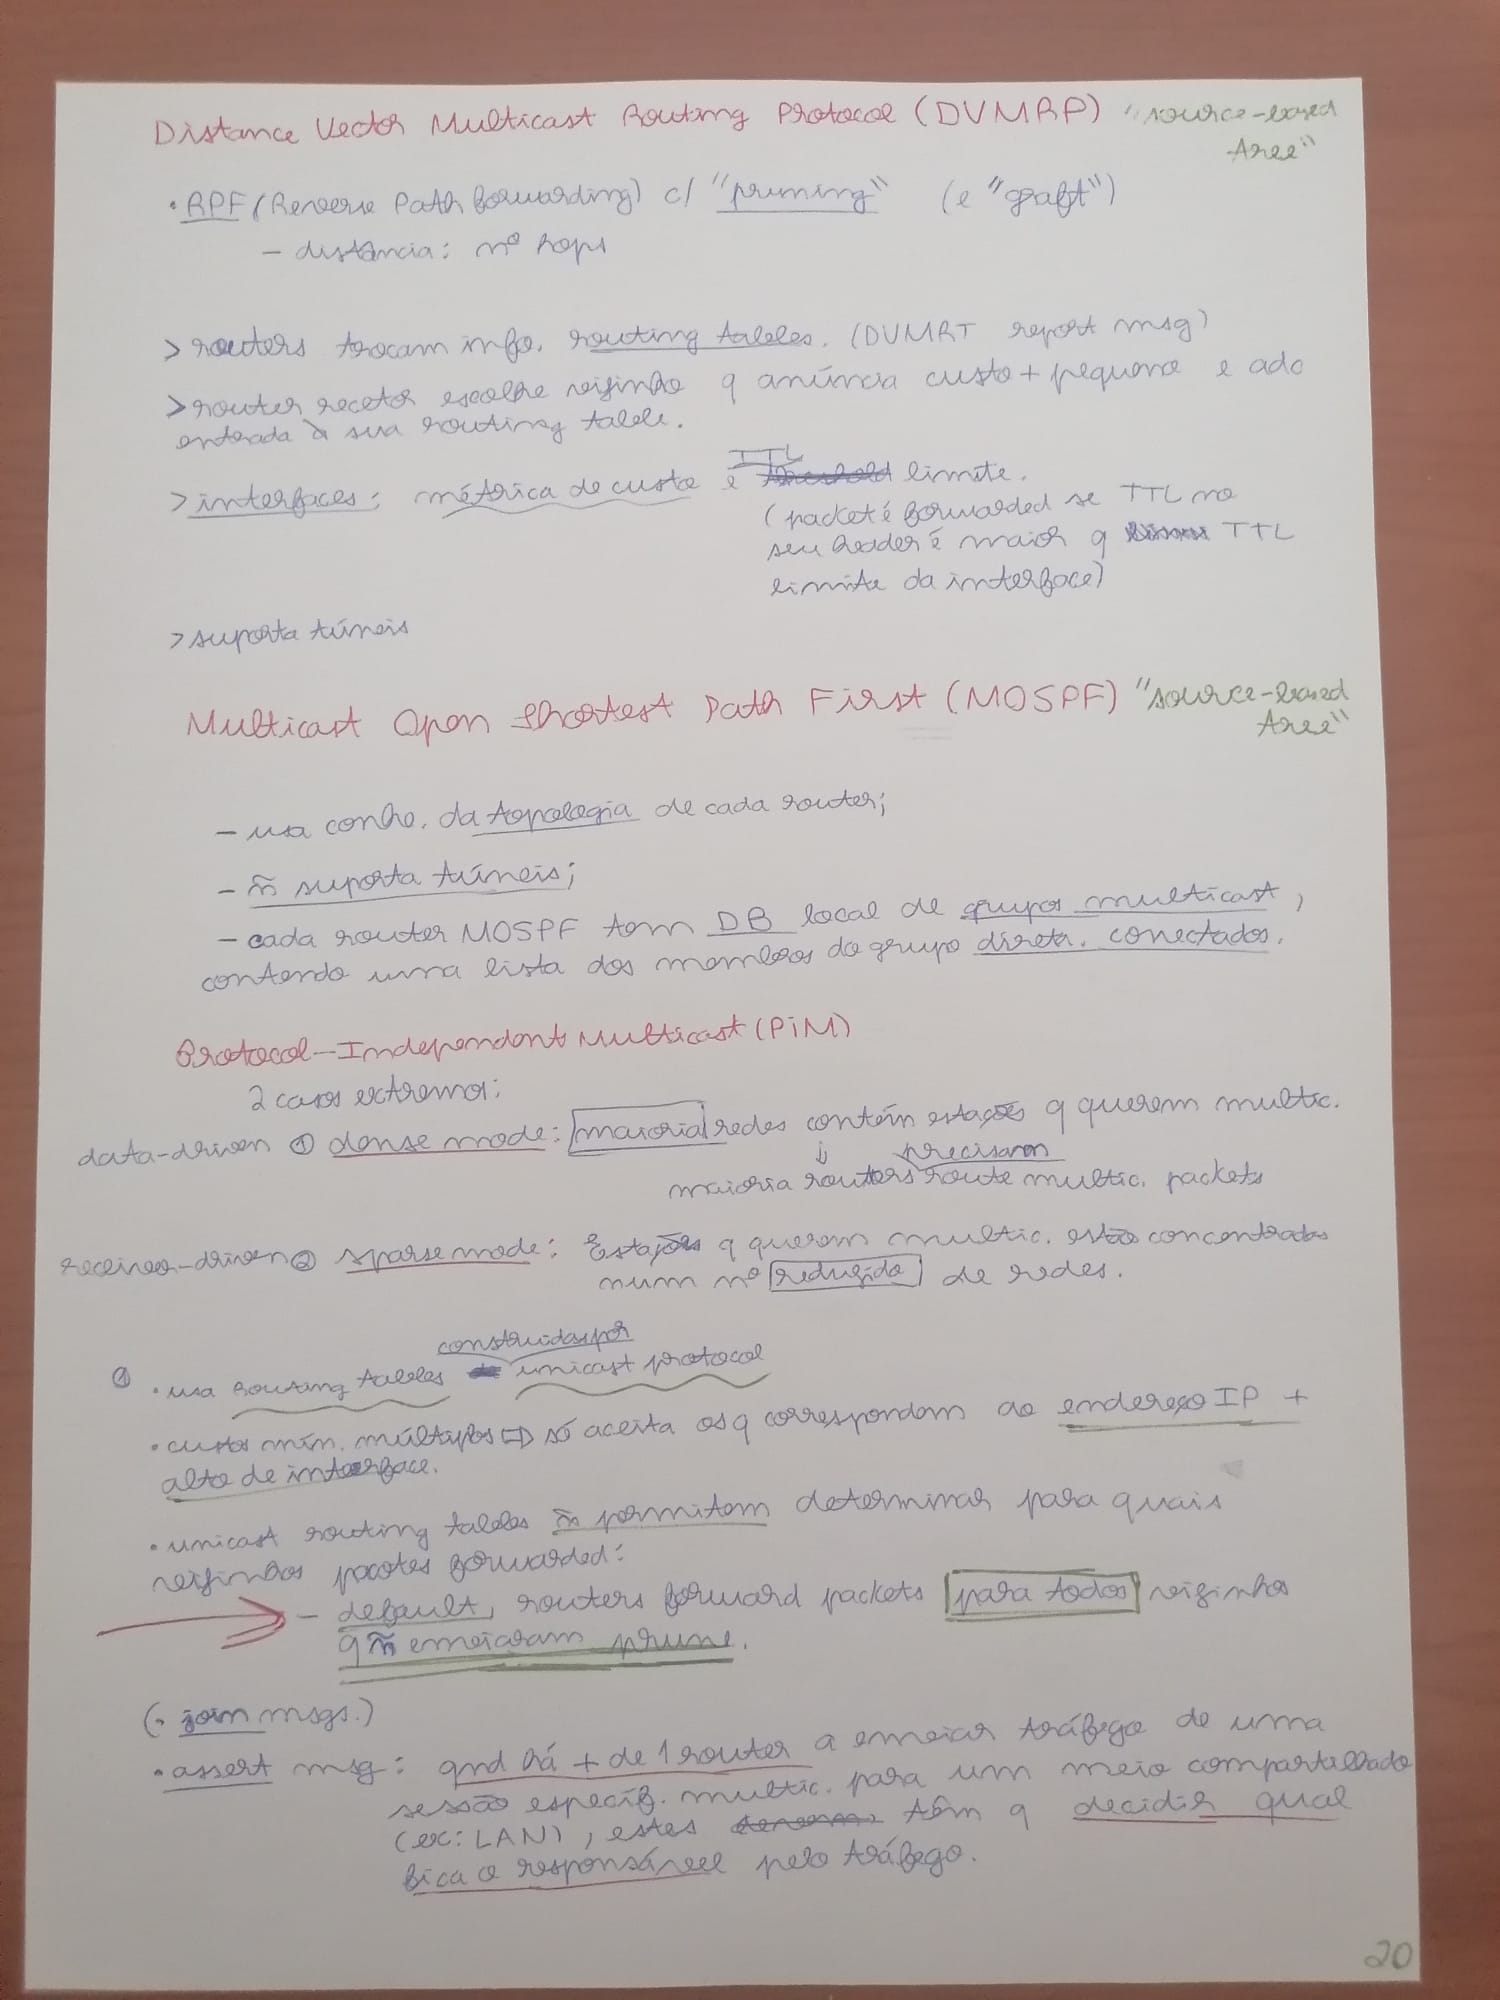 Distance Vector Multicast Routing Protocol (DVMRP) "source-based
tree"
• RPF (Reverse Path forwarding) c/ "pruning" (e "graft")
- distância: nº hops
> routers trocam info. routing tables. (DVMRT report msg)
> router recetor escolhe vizinho q anúncia custo + pequeno e add
entrada à sua routing table.
> interfaces: métrica de custo e TTL limite.
(packet é forwarded se TTL no
seu header é maior q TTL
limite da interface)
> suporta túneis
Multicast Open Shortest Path First (MOSPF) "source-based
tree"
- usa conhe. da topologia de cada router;
- ñ suporta túneis;
- cada router MOSPF tem DB local de grupos multicast,
contendo uma lista dos membros do grupo direta. conectados.
Protocol-Independent Multicast (PiM)
2 casos extremos:
data-driven ① dense mode: maioria redes contêm estações q querem multic.
↓ precisam
maioria routers route multic. packets
receiver-driven ② sparse mode: Estações q querem multic. estão concentradas
num nº reduzido de redes.
construidas por
① • usa routing tables unicast protocol
• custos mín. múltiplos ⇒ só aceita os q correspondem ao endereço IP +
alto de interface.
• unicast routing tables ñ permitem determinar para quais
vizinhos pacotes forwarded:
- default, routers forward packets para todos vizinhos
q ñ enviaram prune.
(• join msgs.)
• assert msg: qnd há + de 1 router a enviar tráfego de uma
sessão específ. multic. para um meio compartilhado
(ex: LAN), estes têm q decidir qual
fica o responsável pelo tráfego.
20